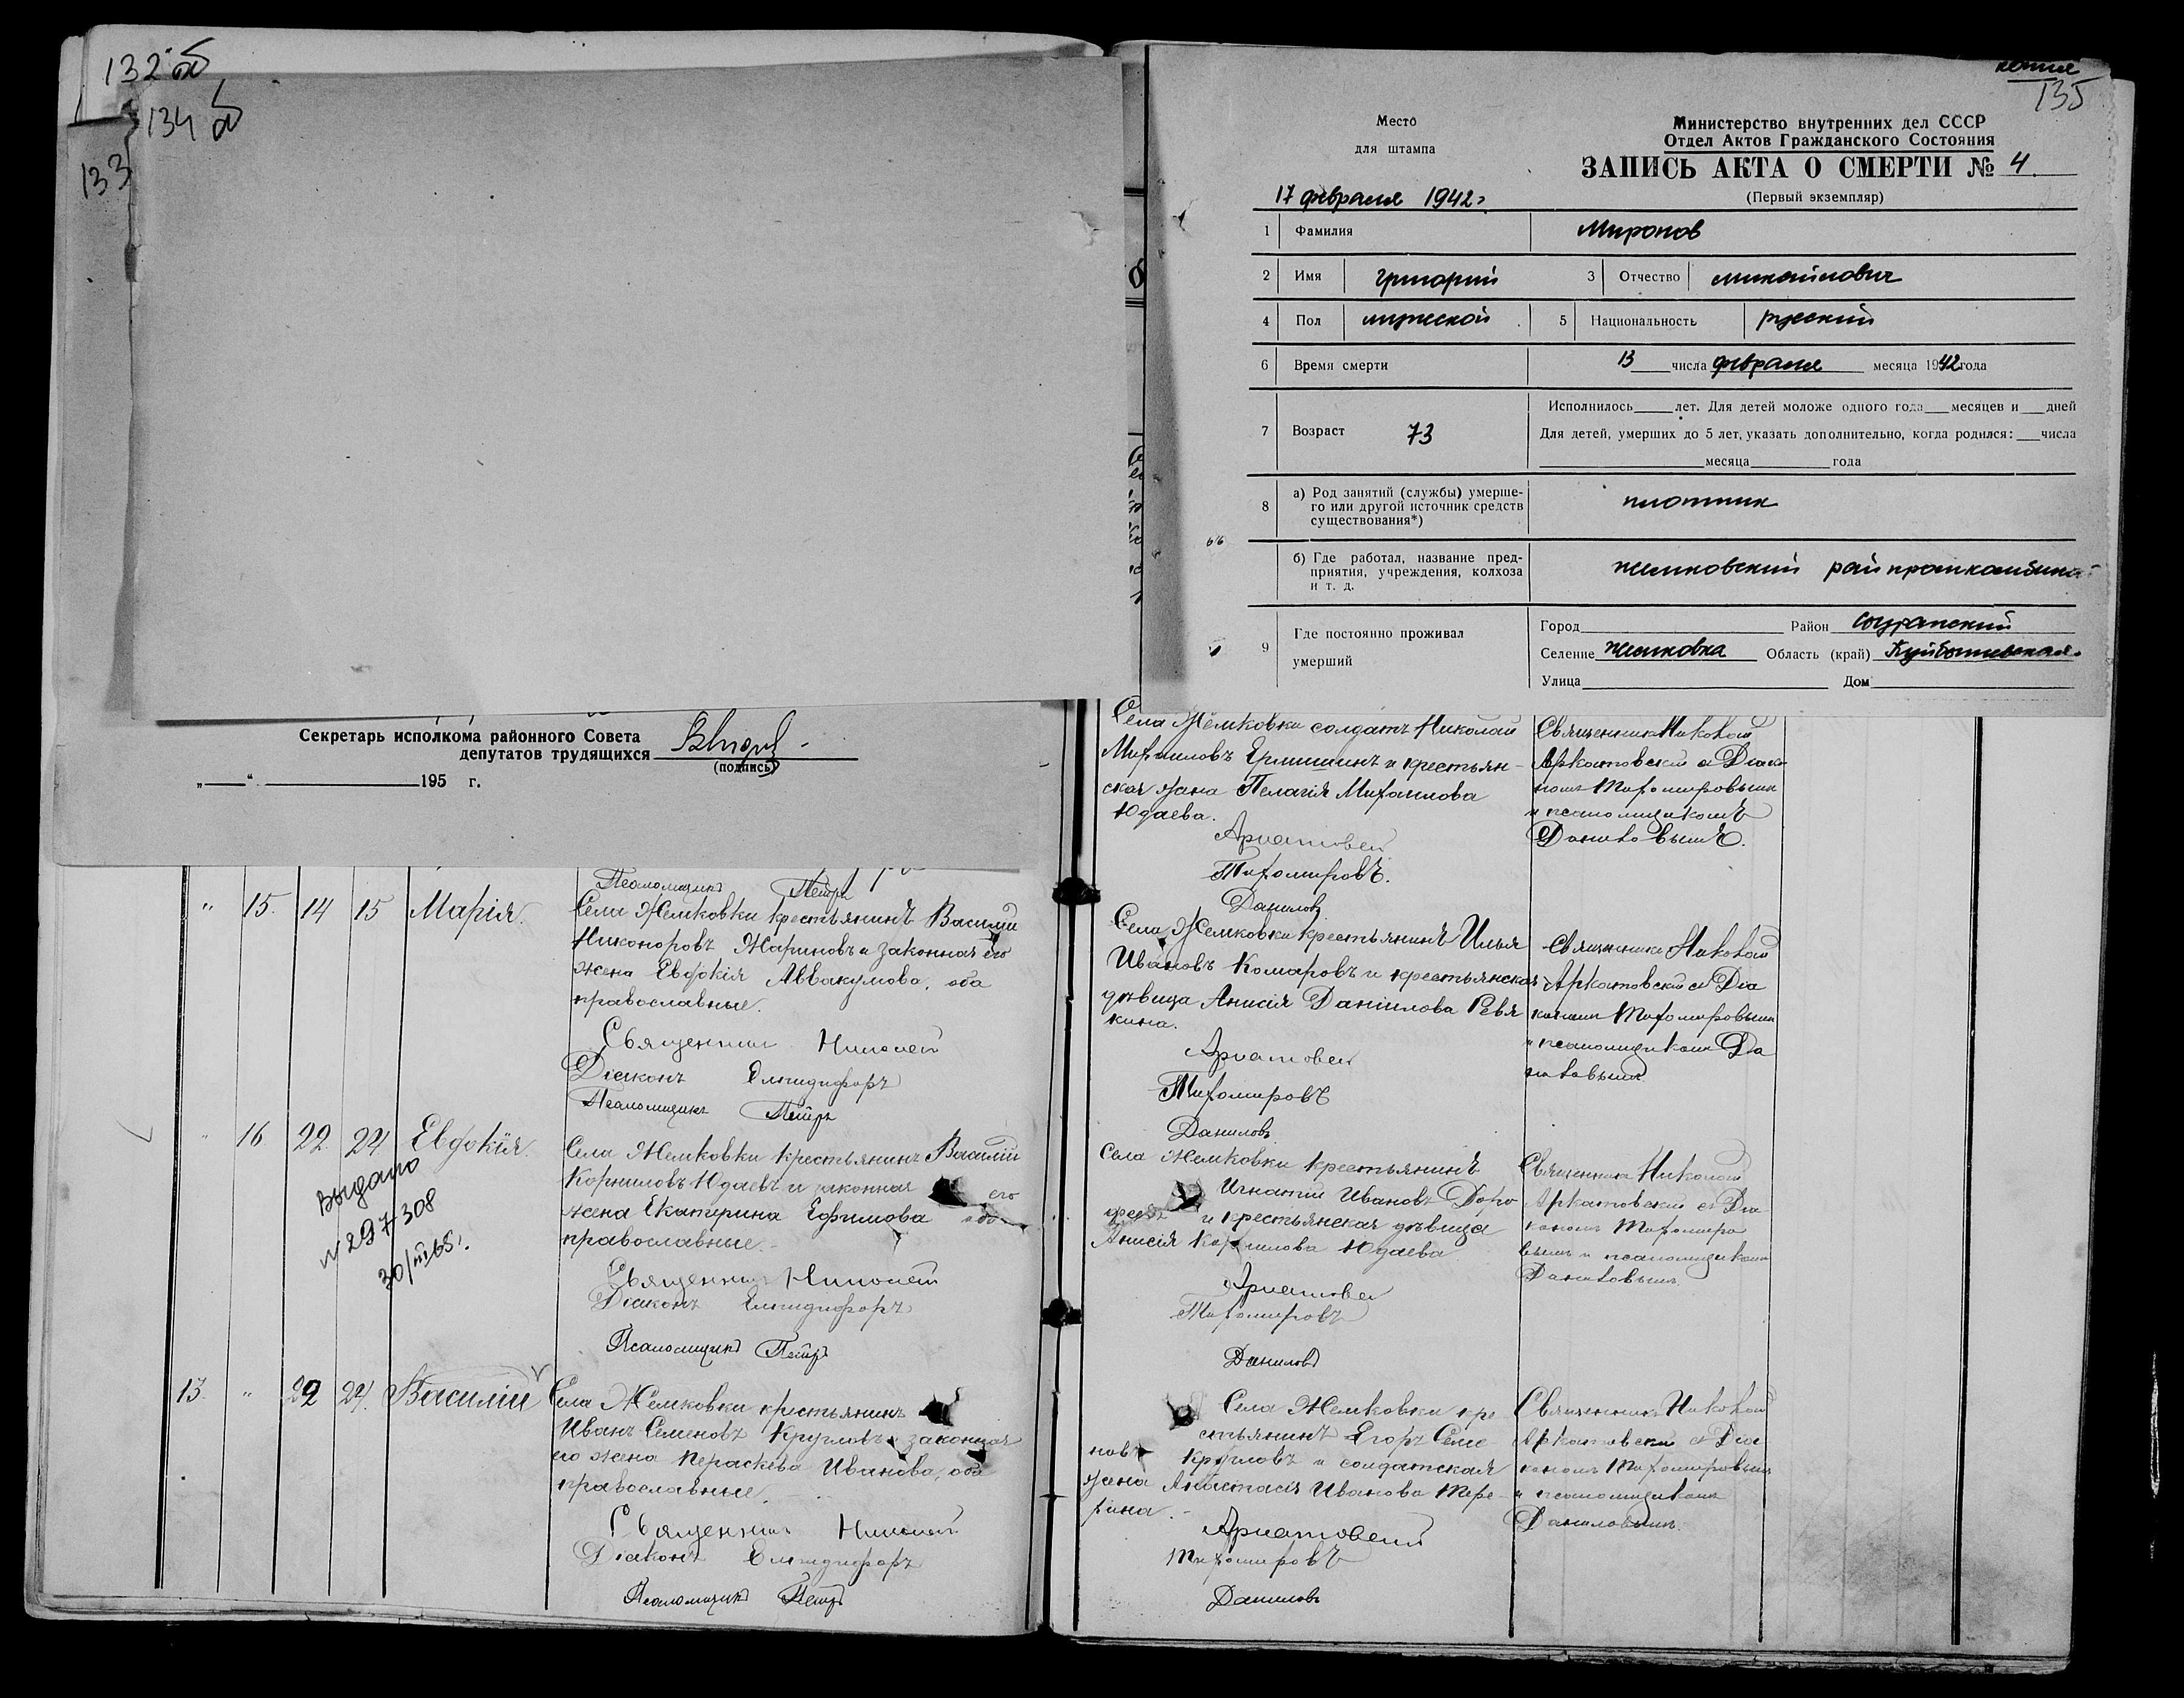 132 об
134 об
133
Секретарь исполкома районного Совета
депутатов трудящихся
(подпись)
„ “ 195 г.
Псаломщикъ Петръ
" 15. 14 15 Марія.
Села Жемковки крестьянинъ Василій
Никоноровъ Жариновъ и законная его
жена Евдокія Аввакумова, оба
православные.
Священникъ Николай
Діаконъ Елпидифоръ
Псаломщикъ Петръ
" 16 22 24 Евдокія.
Выдано
№ 297308
30/III 65.
Села Жемковки крестьянинъ Василій
Корниловъ Юдаевъ и законная его
жена Екатерина Ефимова оба
православные.
Священникъ Николай
Діаконъ Елпидифоръ
Псаломщикъ Петръ
13. " 22 24. Василій
Села Жемковки крестьянинъ
Иванъ Семеновъ Кругловъ и законная
его жена Параскева Иванова, оба
православные.
Священникъ Николай
Діаконъ Елпидифоръ
Псаломщикъ Петръ
копия
135
Место
для штампа
Министерство внутренних дел СССР
Отдел Актов Гражданского Состояния
ЗАПИСЬ АКТА О СМЕРТИ № 4.
(Первый экземпляр)
17 февраля 1942 г
1 Фамилия Миронов
2 Имя Григорий 3 Отчество Михайлович
4 Пол мужской 5 Национальность русский
6 Время смерти 13 числа февраля месяца 1942 года
7 Возраст 73
Исполнилось лет. Для детей моложе одного года месяцев и дней
Для детей, умерших до 5 лет, указать дополнительно, когда родился: числа
месяца года
8 а) Род занятий (службы) умерше-
го или другой источник средств
существования*)
плотник
б) Где работал, название пред-
приятия, учреждения, колхоза
и т. д.
Жемковский райпромкомбинат
9 Где постоянно проживал
умерший
Город Район Сызранский
Селение Жемковка Область (край) Куйбышевская
Улица Дом
Села Жемковки солдатъ Николай
Михаиловъ Ермишинъ и крестьян-
ская жена Пелагія Михаилова
Юдаева.
Аркатовскій
Тихомировъ.
Даниловъ
Священникъ Николай
Аркатовскій съ Діако
номъ Тихомировымъ
и псаломщикомъ
Даниловымъ.
Села Жемковки крестьянинъ Илья
Ивановъ Комаровъ и крестьянская
дѣвица Анисія Даніилова Ревя
кина.
Аркатовскій
Тихомировъ
Даниловъ
Священникъ Николай
Аркатовскій съ Діа
кономъ Тихомировымъ
и псаломщикомъ Да
ниловымъ
Села Жемковки крестьянинъ
Игнатій Ивановъ Доро
и крестьянская дѣвица
Анисія Корнилова Юдаева
Аркатовскій
Тихомировъ
Даниловъ
Священникъ Николай
Аркатовскій съ Діа
кономъ Тихомиро
вымъ и псаломщикомъ
Даниловымъ.
Села Жемковки кре
стьянинъ Егоръ Семе
новъ Кругловъ и солдатская
жена Анастасія Иванова Тере
Аркатовскій
Тихомировъ
Даниловъ
Священникъ Николай
Аркатовскій съ Діа
кономъ Тихомировымъ
и псаломщикомъ
Даниловымъ.